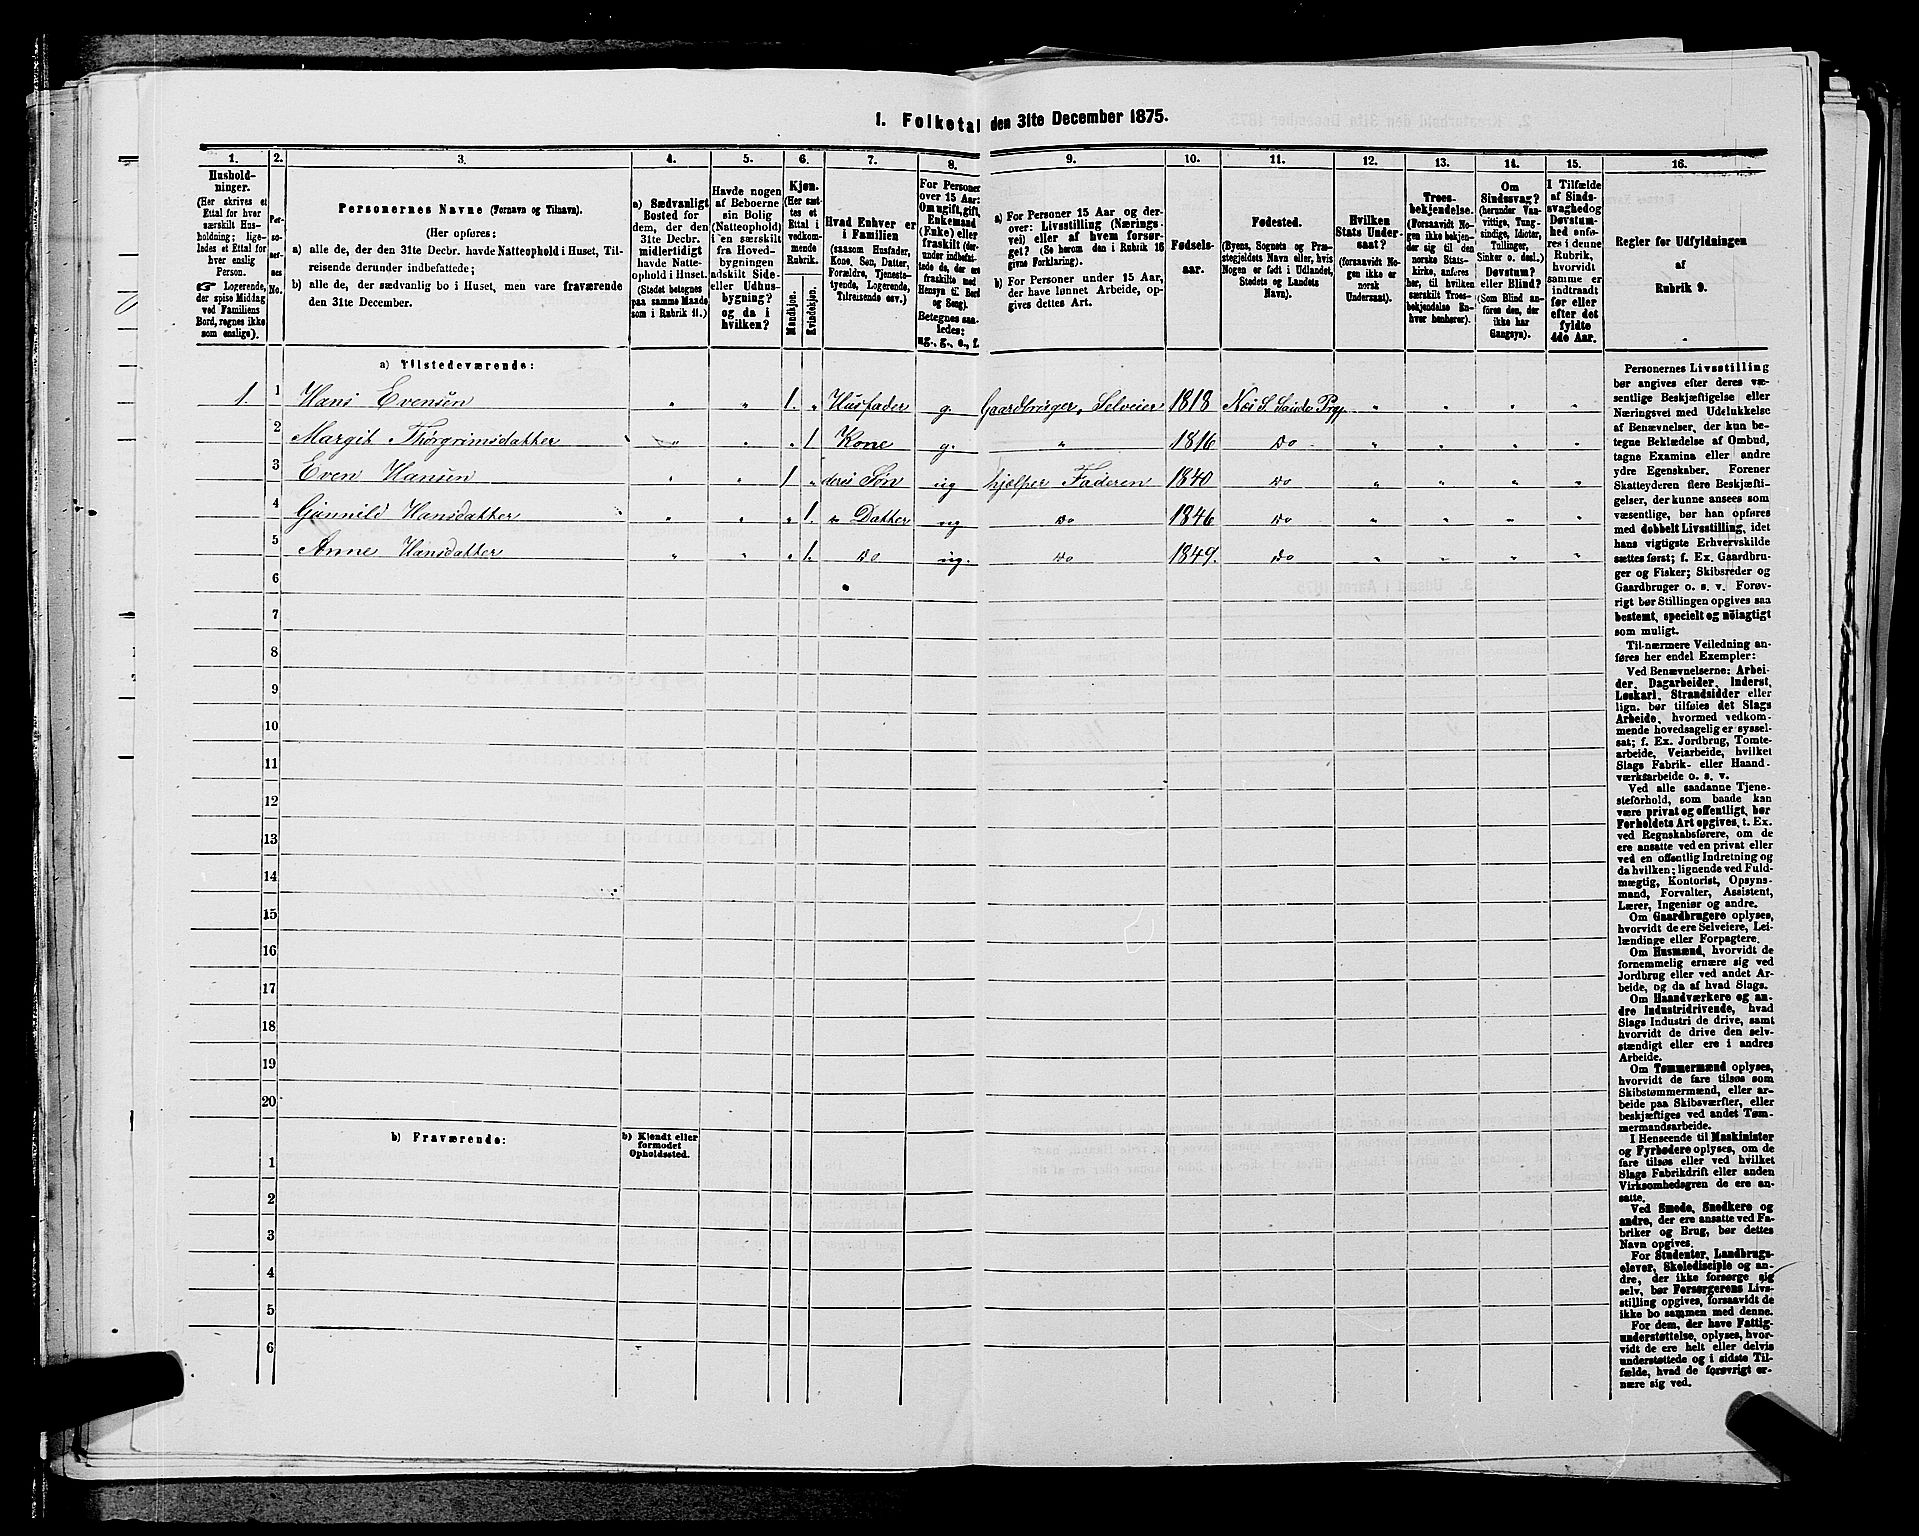 1. Folketal den 31te December 1875.
1. 2. 3. 4. 5. 6. 7. 8. 9. 10. 11. 12. 13. 14. 15. 16.
Husholdninger.
(Her skrives et
Ettal for hver
særskilt Husholdning; ligeledes et Ettal for
hver enslig
Person.
☞ Logerende,
der spise Middag
ved Familiens
Bord, regnes ikke
som enslige).
Personernes No.
Personernes Navne (Fornavn og Tilnavn).
(Her opføres:
a) alle de, der den 31te Decbr. havde Natteophold i Huset, Tilreisende derunder indbefattede;
b) alle de, der sædvanlig bo i Huset, men vare fraværende
den 31te December.
a) Sædvanligt
Bosted for
dem, der den
31te Decbr.
midlertidigt
havde Natteophold i Huset.
(Stedet betegnes
paa samme Maade
som i Rubrik 11.)
Havde nogen
af Beboerne
sin Bolig
(Natteophold)
i en særskilt
fra Hovedbygningen
adskilt Side-
eller Udhusbygning?
og da i
hvilken?
Kjøn.
(Her sættes et
Ettal i
vedkommende
Rubrik.
Mandkjøn.
Kvindekjøn.
Hvad Enhver er
i Familien
(saasom Husfader,
Kone, Søn, Datter,
Forældre, Tjenestetyende, Logerende,
Tilreisende osv.)
For Personer
over 15 Aar:
Om ugift, gift,
Enkemand
(Enke) eller
fraskilt (derunder indbefattede de, der ere
fraskilte med
Hensyn til Bord
og Seng).
Betegnes saaledes:
ug., g., e., f.
a) For Personer 15 Aar og derover: Livsstilling (Næringsvei) eller af hvem forsørget? (Se herom den i Rubrik 16
givne Forklaring).
b) For Personer under 15 Aar,
der have lønnet Arbeide, opgives dettes Art.
Fødselsaar.
Fødested.
(Byens, Sognets og Præstegjeldets Navn eller, hvis
Nogen er født i Udlandet,
Stedets og Landets
Navn).
Hvilken
Stats Undersaat?
(forsaavidt Nogen ikke er
norsk
Undersaat).
Troesbekjendelse.
(Forsaavidt Nogen ikke bekjender sig til den
norske Statskirke, anføres
her, til hvilken
særskilt Troesbekjendelse Enhver henhører).
Om
Sindssvag?
(herunder Vanvittige, Tungsindige, Idioter,
Tullinger,
Sinker o. desl.)
Døvstum?
eller Blind?
(Som Blind anføres den, der
ikke har
Gangsyn).
I Tilfælde
af Sindssvaghed og
Døvstumhed anføres i denne
Rubrik,
hvorvidt
samme er
indtraadt
før eller
efter det
fyldte
4de Aar.
Regler for Udfyldningen
af
Rubrik 9.
a) Tilstedeværende:
1. 1 Hans Evensen " " 1. " Husfader g. Gaardbruger, Selveier 1818 S. Saude Prgj " " " "
2 Margit Thorgrimsdatter " " " 1 Kone g. " 1816 Do " " " "
3 Even Hansen " " 1 " deres Søn ug hjælper Faderen 1840 Do " " " "
4 Gunnild Hansdatter " " " 1. " Datter ug Do 1846 Do " " " "
5 Anne Hansdatter " " " 1. Do ug. Do 1849. Do " " " "
6
7
8
9
10
11
12
13
14
15
16
17
18
19
20
b) Fraværende:
b) Kjendt eller
formodet
Opholdssted.
1
2
3
4
5
6
Personernes Livsstilling
bør angives efter deres væsentlige Beskjæftigelse eller
Næringsvei med Udelukkelse
af Benævnelser, der kun betegne Beklædelse af Ombud,
tagne Examina eller andre
ydre Egenskaber. Forener
Skatteyderen flere Beskjæftigelser, der kunne ansees som
væsentlige, bør han opføres
med dobbelt Livsstilling, idet
hans vigtigste Erhvervskilde
sættes først; f. Ex. Gaardbruger og Fisker; Skibsreder og
Gaardbruger o. s. v. Forøvrigt bør Stillingen opgives saa
bestemt, specielt og nøiagtigt
som muligt.
Til nærmere Veiledning anføres her endel Exempler:
Ved Benævnelserne: Arbeider, Dagarbeider, Inderst,
Løskarl, Strandsidder eller
lign. bør tilføies det Slags
Arbeide, hvormed vedkommende hovedsagelig er sysselsat; f. Ex. Jordbrug, Tomtearbeide, Veiarbeide, hvilket
Slags Fabrik- eller Haandværksarbeide o. s. v.
Ved alle saadanne Tjenesteforhold, som baade kan
være privat og offentligt, bør
Forholdets Art opgives, t. Ex.
ved Regnskabsførere, om de
ere ansatte ved en privat eller
ved en offentlig Indretning og
da hvilken; lignende ved Fuldmægtig, Kontorist, Opsynsmand, Forvalter, Assistent,
Lærer, Ingeniør og andre.
Om Gaardbrugere oplyses,
hvorvidt de ere Selveiere, Leilændinge eller Forpagtere.
Om Husmænd, hvorvidt de
fornemmelig ernære sig ved
Jordbrug eller ved andet Arbeide, og da af hvad Slags.
Om Haandværkere og andre Industridrivende, hvad
Slags Industri de drive, samt
hvorvidt de drive den selvstændigt eller ere i andres
Arbeide.
Om Tømmermænd oplyses,
hvorvidt de fare tilsøs som
Skibstømmermænd, eller arbeide paa Skibsværfter, eller
beskjæftiges ved andet Tømmermandsarbeide.
I Henseende til Maskinister
og Fyrbødere oplyses, om de
fare tilsøs eller ved hvilket
Slags Fabrikdrift eller anden
Virksomhedsgren de ere ansatte.
Ved Smede, Snedkere og
andre, der ere ansatte ved Fabriker og Brug, bør dettes
Navn opgives.
For Studenter, Landbrugselever, Skoledisciple og andre, der ikke forsørge sig
selv, bør Forsørgerens Livsstilling opgives, forsaavidt de
ikke bo sammen med denne.
For dem, der have Fattigunderstøttelse, oplyses, hvorvidt de ere helt eller delvis
understøttede og i sidste Tilfælde, hvad de forøvrigt ernære sig ved.